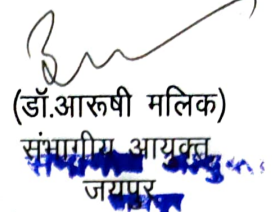 (डॉ.आरूषी मलिक)
संभागीय आयुक्त
जयपुर